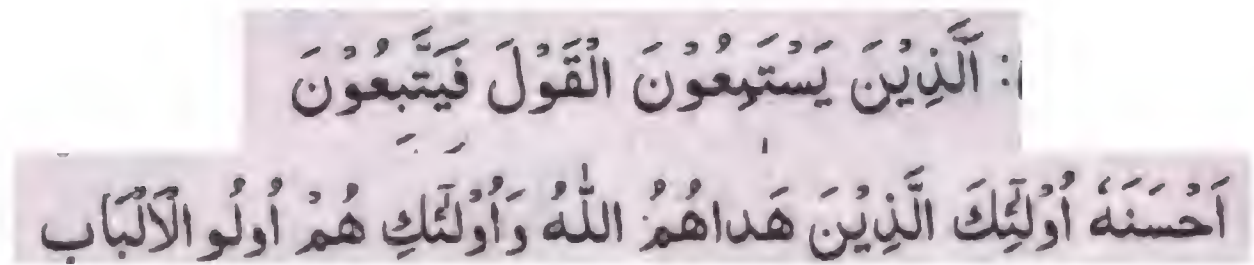 : اَلَّذِيْنَ يَسْتَمِعُوْنَ الْقَوْلَ فَيَتَّبِعُوْنَ
اَحْسَنَهٗ اُوْلٰٓئِكَ الَّذِيْنَ هَداهُمُ اللّٰهُ وَاُوْلٰٓئِكَ هُمْ اُولُو الْاَلْبَابِ